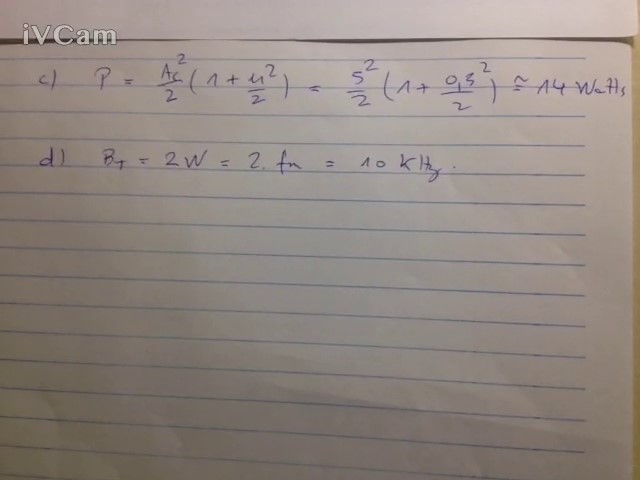 iVCam
c) P = Ac²/2 (1 + μ²/2) = 5²/2 (1 + 0,5²/2) ≅ 14 Watts
d) B_T = 2W = 2. fm = 10 kHz.